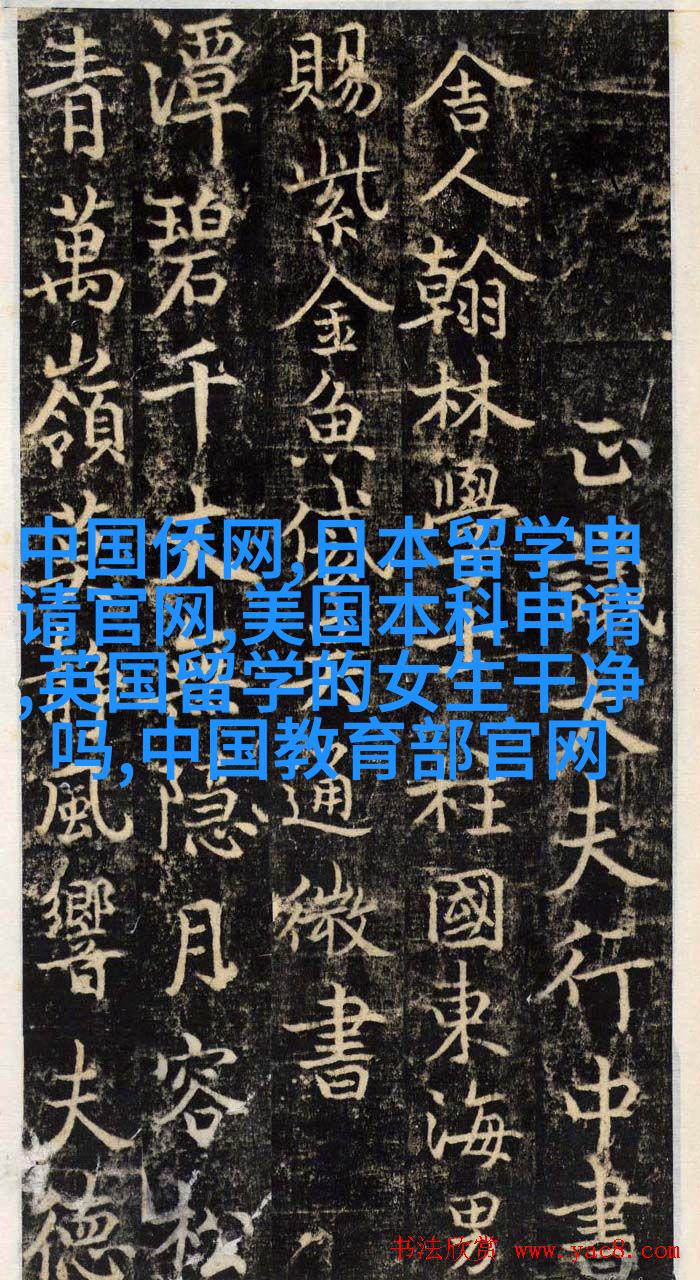 正議大夫行中書
舍人翰林學柱國東海男
賜紫金魚袋通微書
潭碧千丈隱月容松
青萬嶺風響夫德
中国侨网,日本留学申
请官网,美国本科申请
,英国留学的女生干净
吗,中国教育部官网
书法欣赏 www.yac8.com